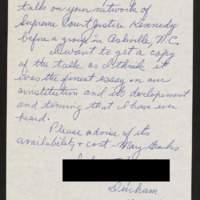 talk on your network of
Supreme Court Justice Kennedy
before a group in Asheville, N.C.
I want to get a copy
of the talk as I think it
was the finest essay on our
constitution and its development
and meaning that I have ever
heard.
Please advise of its
availability & cost - Many thanks
Durham